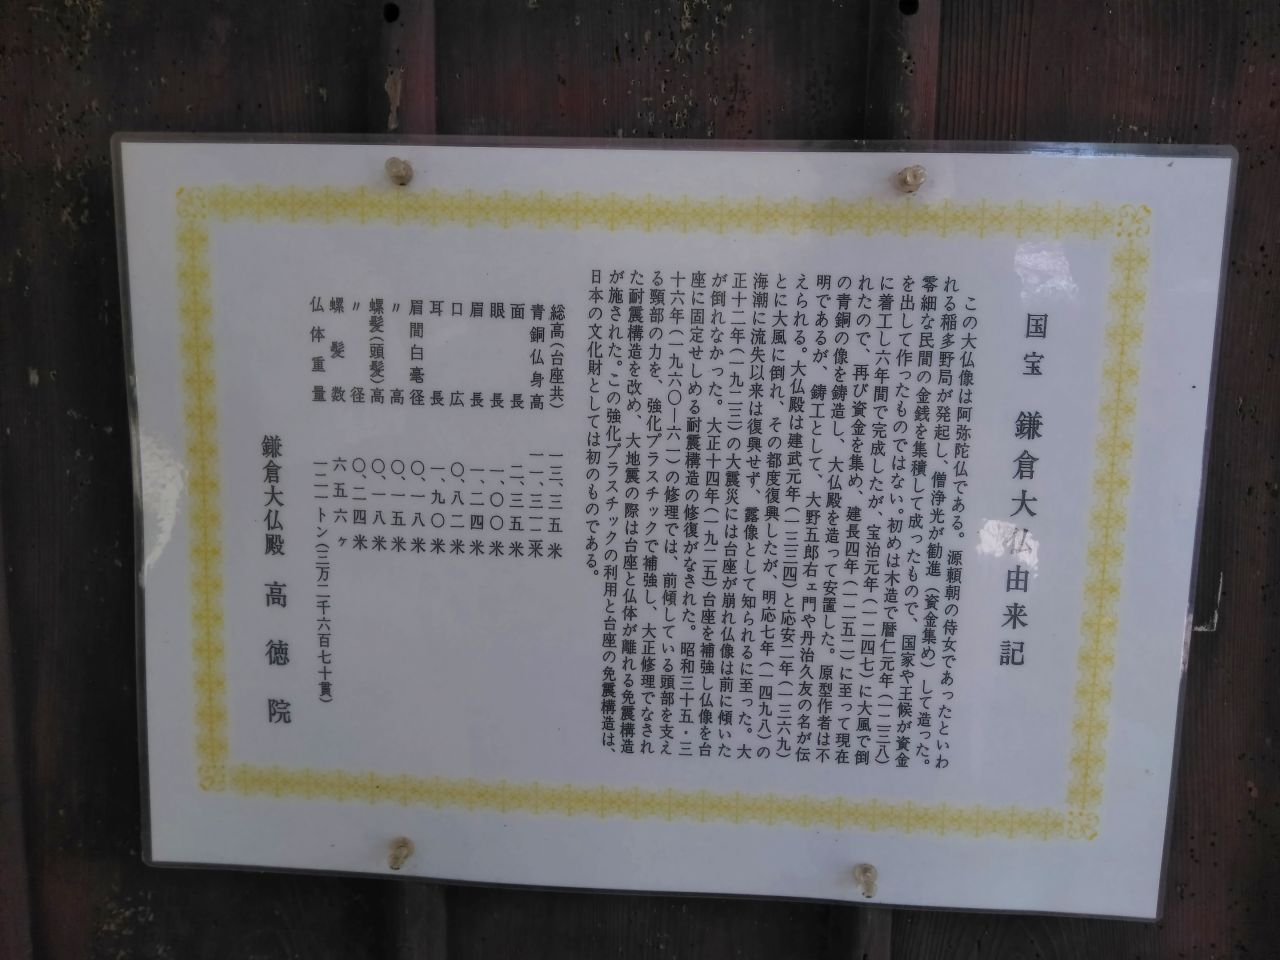 国宝 鎌倉大仏由来記
この大仏像は阿弥陀仏である。源頼朝の侍女であったといわ
れる稲多野局が発起し、僧浄光が勧進(資金集め)して造った。
零細な民間の金銭を集積して成ったもので、国家や王候が資金
を出して作ったものではない。初めは木造で暦仁元年(一二三八)
に着工し六年間で完成したが、宝治元年(一二四七)に大風で倒
れたので、再び資金を集め、建長四年(一二五二)に至って現在
の青銅の像を鋳造し、大仏殿を造って安置した。原型作者は不
明であるが、鋳工として、大野五郎右ェ門や丹治久友の名が伝
えられる。大仏殿は建武元年(一三三四)と応安二年(一三六九)
とに大風に倒れ、その都度復興したが、明応七年(一四九八)の
海潮に流失以来は復興せず、露像として知られるに至った。大
正十二年(一九二三)の大震災には台座が崩れ仏像は前に傾いた
が倒れなかった。大正十四年(一九二五)台座を補強し仏像を台
座に固定せしめる耐震構造の修復がなされた。昭和三十五・三
十六年(一九六〇—六一)の修理では、前傾している頭部を支え
る頸部の力を、強化プラスチックで補強し、大正修理でなされ
た耐震構造を改め、大地震の際は台座と仏体が離れる免震構造
が施された。この強化プラスチックの利用と台座の免震構造は、
日本の文化財としては初のものである。
総高(台座共) 一三、三五米
青銅仏身高 一一、三一二米
面長 二、三五米
眼長 一、〇〇米
眉長 一、二四米
口広 〇、八二米
耳長 一、九〇米
眉間白毫径 〇、一八米
〃高 〇、一五米
螺髪(頭髪)高 〇、一八米
〃径 〇、二四米
螺髪数 六五六ヶ
仏体重量 一二一トン(三万二千六百七十貫)
鎌倉大仏殿 高徳院